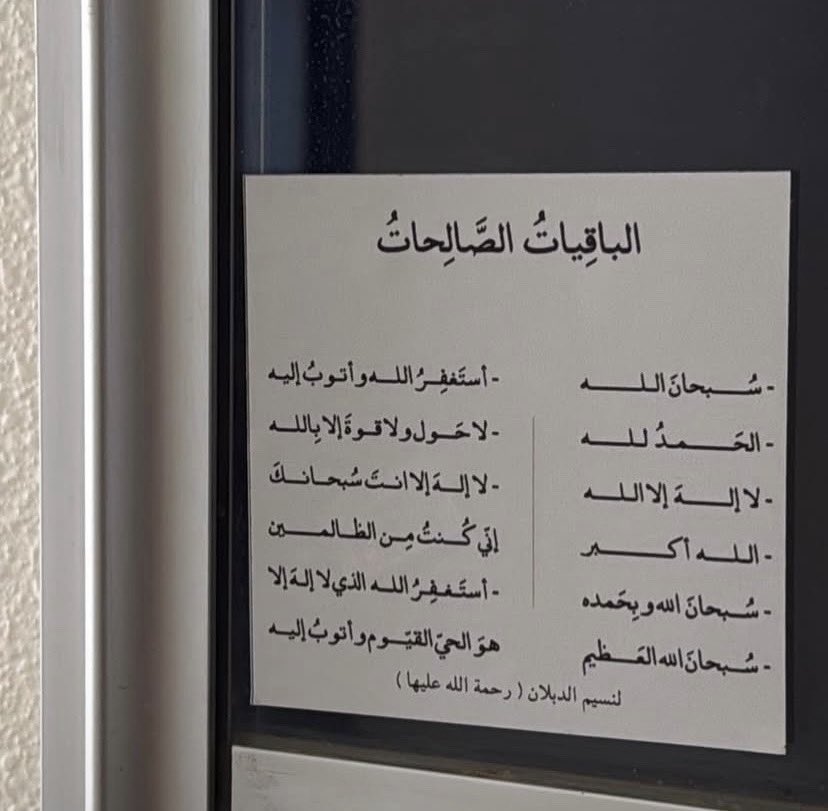 الباقِياتُ الصَّالِحاتُ
- سُبحانَ الله
- الحَمدُ لله
- لا إلهَ إلا الله
- الله أكبر
- سُبحانَ الله وبِحَمده
- سُبحانَ الله العَظيم
- أستَغفِرُ الله وأتوبُ إليه
- لا حَول ولا قوةَ إلا بِالله
- لا إلهَ إلا انتَ سُبحانكَ
إنّي كُنتُ مِن الظالمين
- أستَغفِرُ الله الذي لا إلهَ إلا
هوَ الحيّ القيّوم وأتوبُ إليه
لنسيم الدبلان ( رحمة الله عليها )